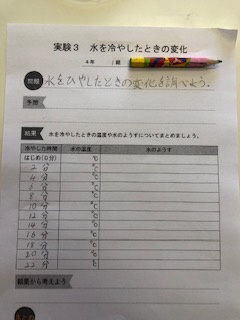 実験3 水を冷やしたときの変化
4年 組
問題 水をひやしたときの変化を調べよう。
予想
結果 水を冷やしたときの温度や水のようすについてまとめましょう。
冷やした時間 水の温度 水のようす
はじめ(0分) ℃
2 分 ℃
4 分 ℃
6 分 ℃
8 分 ℃
10 分 ℃
12 分 ℃
14 分 ℃
16 分 ℃
18 分 ℃
20 分 ℃
22 分 ℃
結果から考えよう